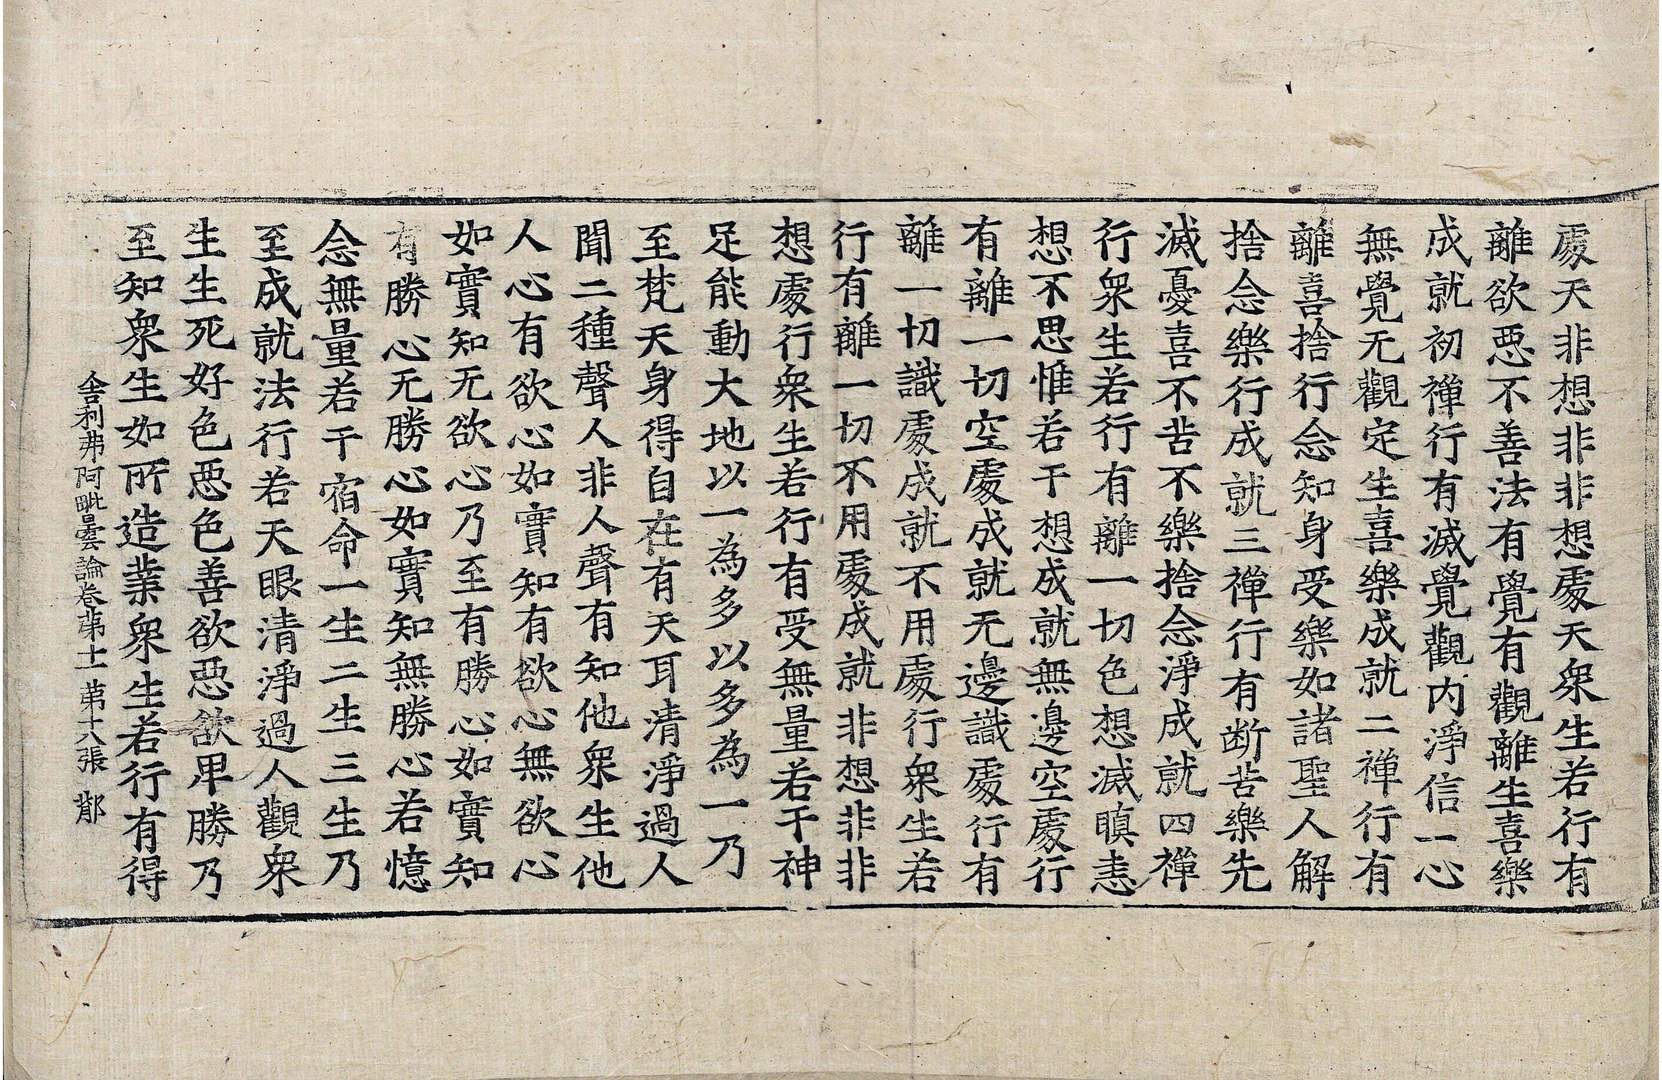 處天非想非非想處天衆生若行有
離欲惡不善法有覺有觀離生喜樂
成就初禪行有滅覺觀內淨信一心
無覺无觀定生喜樂成就二禪行有
離喜捨行念知身受樂如諸聖人解
捨念樂行成就三禪行有断苦樂先
滅憂喜不苦不樂捨念淨成就四禪
行衆生若行有離一切色想滅瞋恚
想不思惟若干想成就無邊空處行
有離一切空處成就无邊識處行有
離一切識處成就不用處行衆生若
行有離一切不用處成就非想非非
想處行衆生若行有受無量若干神
足能動大地以一為多以多為一乃
至梵天身得自在有天耳清淨過人
聞二種聲人非人聲有知他衆生他
人心有欲心如實知有欲心無欲心
如實知无欲心乃至有勝心如實知
有勝心无勝心如實知無勝心若憶
念無量若干宿命一生二生三生乃
至成就法行若天眼清淨過人觀衆
生生死好色惡色善欲惡欲卑勝乃
至知衆生如所造業衆生若行有得
舍利弗阿毗曇論卷苐十一 苐十八張 鄁